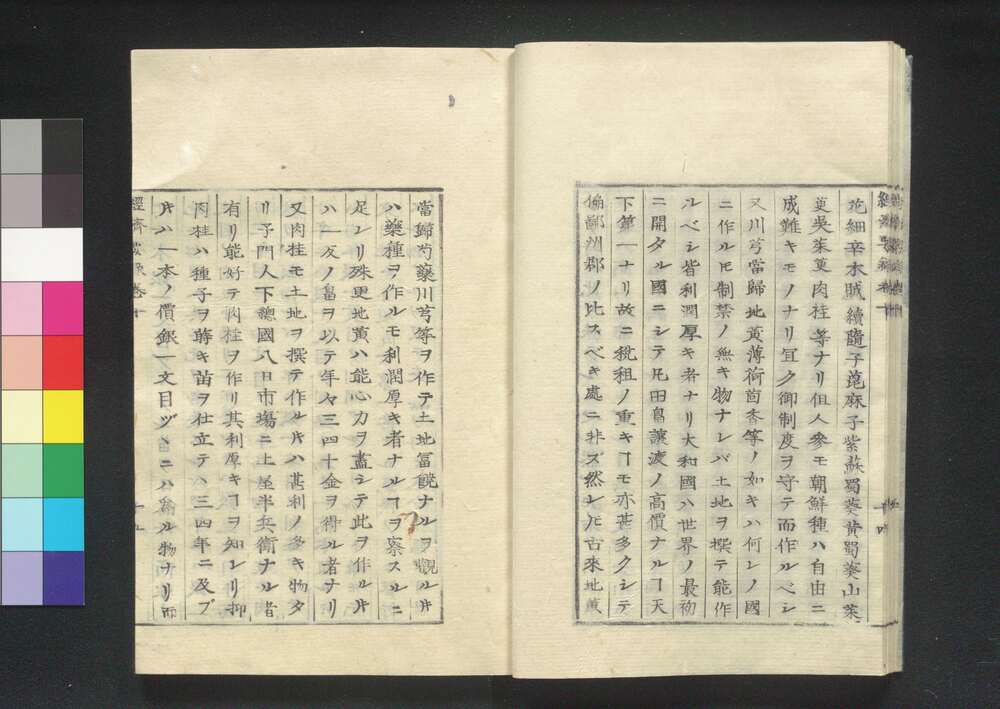 花細辛木賊續隨子蓖麻子紫蘇蜀葵黄蜀葵山茱
萸吳茱萸肉桂等ナリ但人參モ朝鮮種ハ自由ニ
成難キモノナリ宜ク御制度ヲ守テ而作ルベシ
又川芎當歸地黄薄荷茴香等ノ如キハ何レノ國
ニ作ルㇳモ制禁ノ無キ物ナレバ土地ヲ撰テ能作
ルベシ皆利潤厚キ者ナリ大和國ハ世界ノ最初
ニ開タル國ニシテ凡田畠讓渡ノ高價ナルヿ天
下第一ナリ故ニ税租ノ重キヿモ亦甚多クシテ
偏鄙州郡ノ比スベキ處ニ非ズ然レ𪜈古來地黄
當歸芍藥川芎等ヲ作テ土地冨饒ナルヲ觀ル片
ハ藥種ヲ作ルモ利潤厚キ者ナルヿヲ察スルニ
足レリ殊更地黄ハ能心力ヲ盡シテ此ヲ作ル片
ハ一反ノ畠ヲ以テ年々三四十金ヲ得ル者ナリ
又肉桂モ土地ヲ撰テ作ル片ハ甚利ノ多キ物タ
リ予門人下總國八日市塲ニ土屋半兵衛ナル者
有リ能好テ肉桂ヲ作リ其利厚キヿヲ知レリ抑
肉桂ハ種子ヲ蒔キ苗ヲ仕立テハ三四年ニ及ブ
片ハ一本ノ價銀一文目ヅヽニハ爲ル物ナリ而
經濟要錄卷十
十五